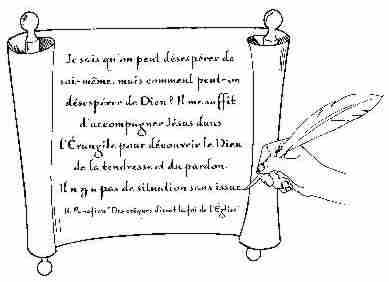 Je sais qu'on peut désespérer de
soi-même, mais comment peut-on
désespérer de Dieu ? Il me suffit
d'accompagner Jésus dans
l'Évangile pour découvrir le Dieu
de la tendresse et du pardon.
Il n'y a pas de situation sans issue
"Des évêques disent la foi de l'Église"